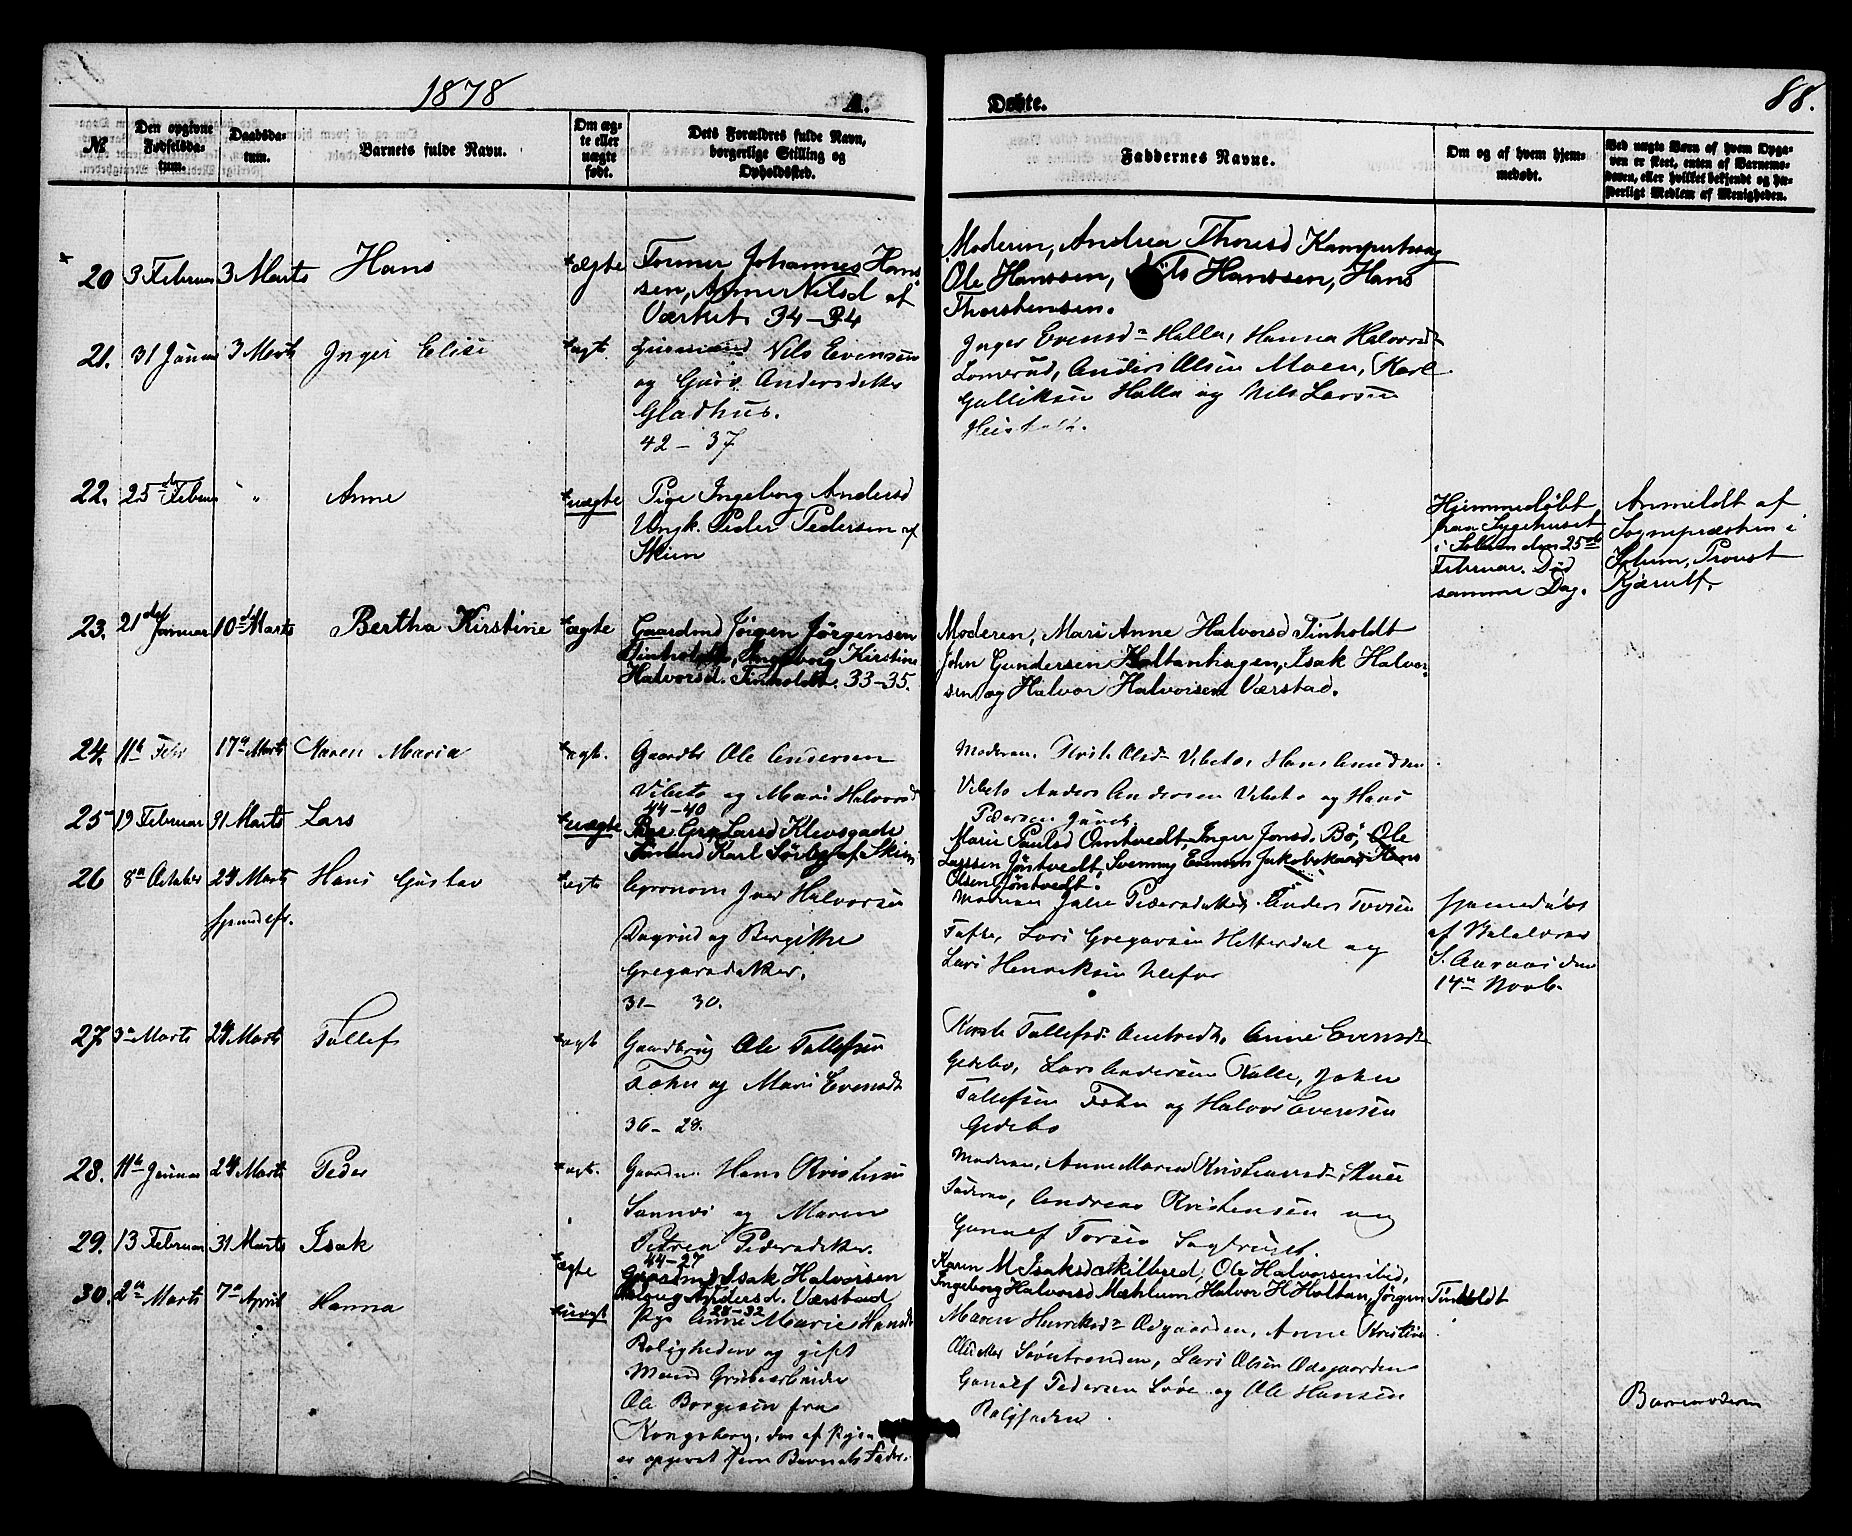 1878
A.
Døbte.
88.
No
Den opgivne Fødselsdatum.
Daabsdatum.
Barnets fulde Navn.
Om ægte eller uægte født.
Dets Forældres fulde Navn, borgerlige Stilling og Opholdssted.
Faddernes Navne.
Om og af hvem hjemmedøbt.
Ved uægte Børn af hvem Opgaven er skeet, enten af Barnemoderen, eller hvilket bekjendt og hæderligt Medlem af Menigheden.
20 3 Februar 3 Marts Hans ægte
Former Johannes Hans
sen, Anne Nilsd af
Værket. 34-34
Moderen, Andrea Thoresd Kamperhaug
Ole Hanssen, Nils Hanssen, Hans
Thorstensen.
21. 31 Januar 3 Marts Inger Elise ægt.
Nils Evensen
og Guro Andersdatter
Gladhus.
42 - 37
Inger Evensd Halla, Hanna Halvorsd
Lomerud, Anders Olsen Moen, Karl
Gulliksen Halla og Nils Larsen
22. 25 Februar " Anne uægte
Pige Ingeborg Andersd
Ungk. Peder Pedersen af
Skien
Hjemmedøbt
paa Sygehuset
i Solum den 25de
Februar. Død
samme Dag.
Anmeldt af
Sognepræsten i
Solum, Provst
23. 21de Januar 10de Marts Bertha Kirstine ægte
Gaardmd Jørgen Jørgensen
Tinholdt, Ingeborg Kirstine
Halvorsd. Tinholdt. 33-35.
Moderen, Mari Anne Halvorsd Tinholdt
John Gundersen Holtanhagen, Isak Halvor-
sen og Halvor Halvorsen Værstad.
24. 11te Febr 17de Marts Maren Maria ægt.
Gaardbr Ole Andersen
Vibeto og Mari Halvorsd
44-40
Moderen. Olsd Vibeto, Hans Amundsen
Vibeto Anders Andersen Vibeto og Hans
Pedersen
25 19 Februar 31 Marts Lars uægte
Pige Gro Larsd Klevsgade
Karl Sørby af Skien
Marie Paulsd Omtvedt, Inger Jonsd. Bø, Ole
Larssen Jøntvedt, Svennug Evensen Jakobskaas Hans
Olsen Jøntvedt.
26 8de October 24 Marts Hans Gustav ægte
fremdefr.
Iver Halvorsen
Dagrud og Bergitthe
Gregarsdatter.
31 - 30.
Moderen Pedersdatter, Anders Torsen
Tufte, Lars Gregarsen Hitterdal og
Lars Henriksen Ulefos
Hjemmedøbt
af
S. Aaraas den
14de Novb.
27 3de Marts 24 Marts Tollef ægt
Gaardbrug Ole Tollefsen
og Mari Evensdt
36 - 28.
Kirste Tollefsd Omtvedt, Anne Evensdt
Gedebo, Lars Andersen Kalle, John
Tollefsen og Halvor Evensen
Gedebo
28. 11te Januar 24 Marts Peder ægt.
Gaardm. Hans Kristensen
Sannes og Maren
Petrea Pedersdatter.
44-27
Moderen, Anne Maren Kristiansd
Faderen, Andreas Kristensen og
Gunulf Torsen
29. 13 Februar 31 Marts Isak ægte
Gaardmd Isak Halvorsen
Aslaug Andersd. Værstad
28-32
Karen M Isaksd Skilbred, Ole Halvorsen ibid,
Ingeborg Halvorsd Mæhlum, Halvor H Holtan, Jørgen Tinholdt
30. 2den Marts 7de April Hanna uægt
Pige Anne Marie Hansd
Roligheden og gift
Mand Grubearbeider
Ole Borgesen fra
Kongsberg, der af Pigen
er opgivet som Barnets Fader.
Maren Henriksd Odegaarden, Anne Kristine
Olsdatter Søvestranden, Lars Olsen Odegaarden
Gunulf Pedersen Sove og Ole Hansen
Roligheden
Barnemoderen